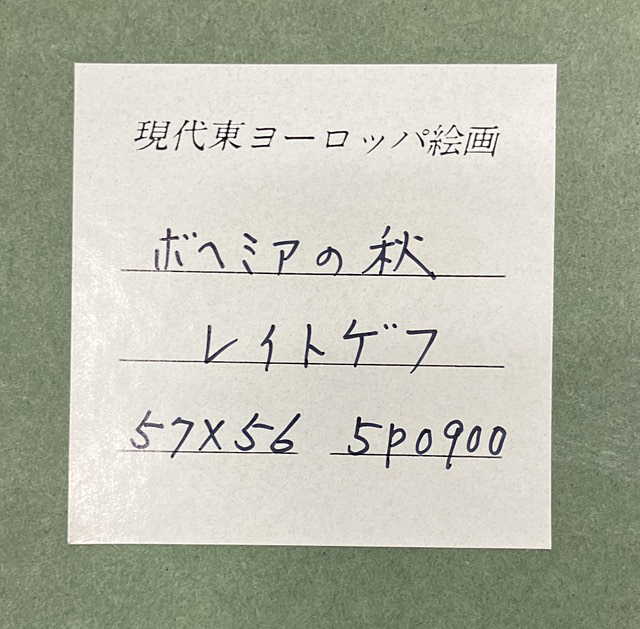 現代東ヨーロッパ絵画
ボヘミアの秋
レイトゲフ
57×56 5p0900